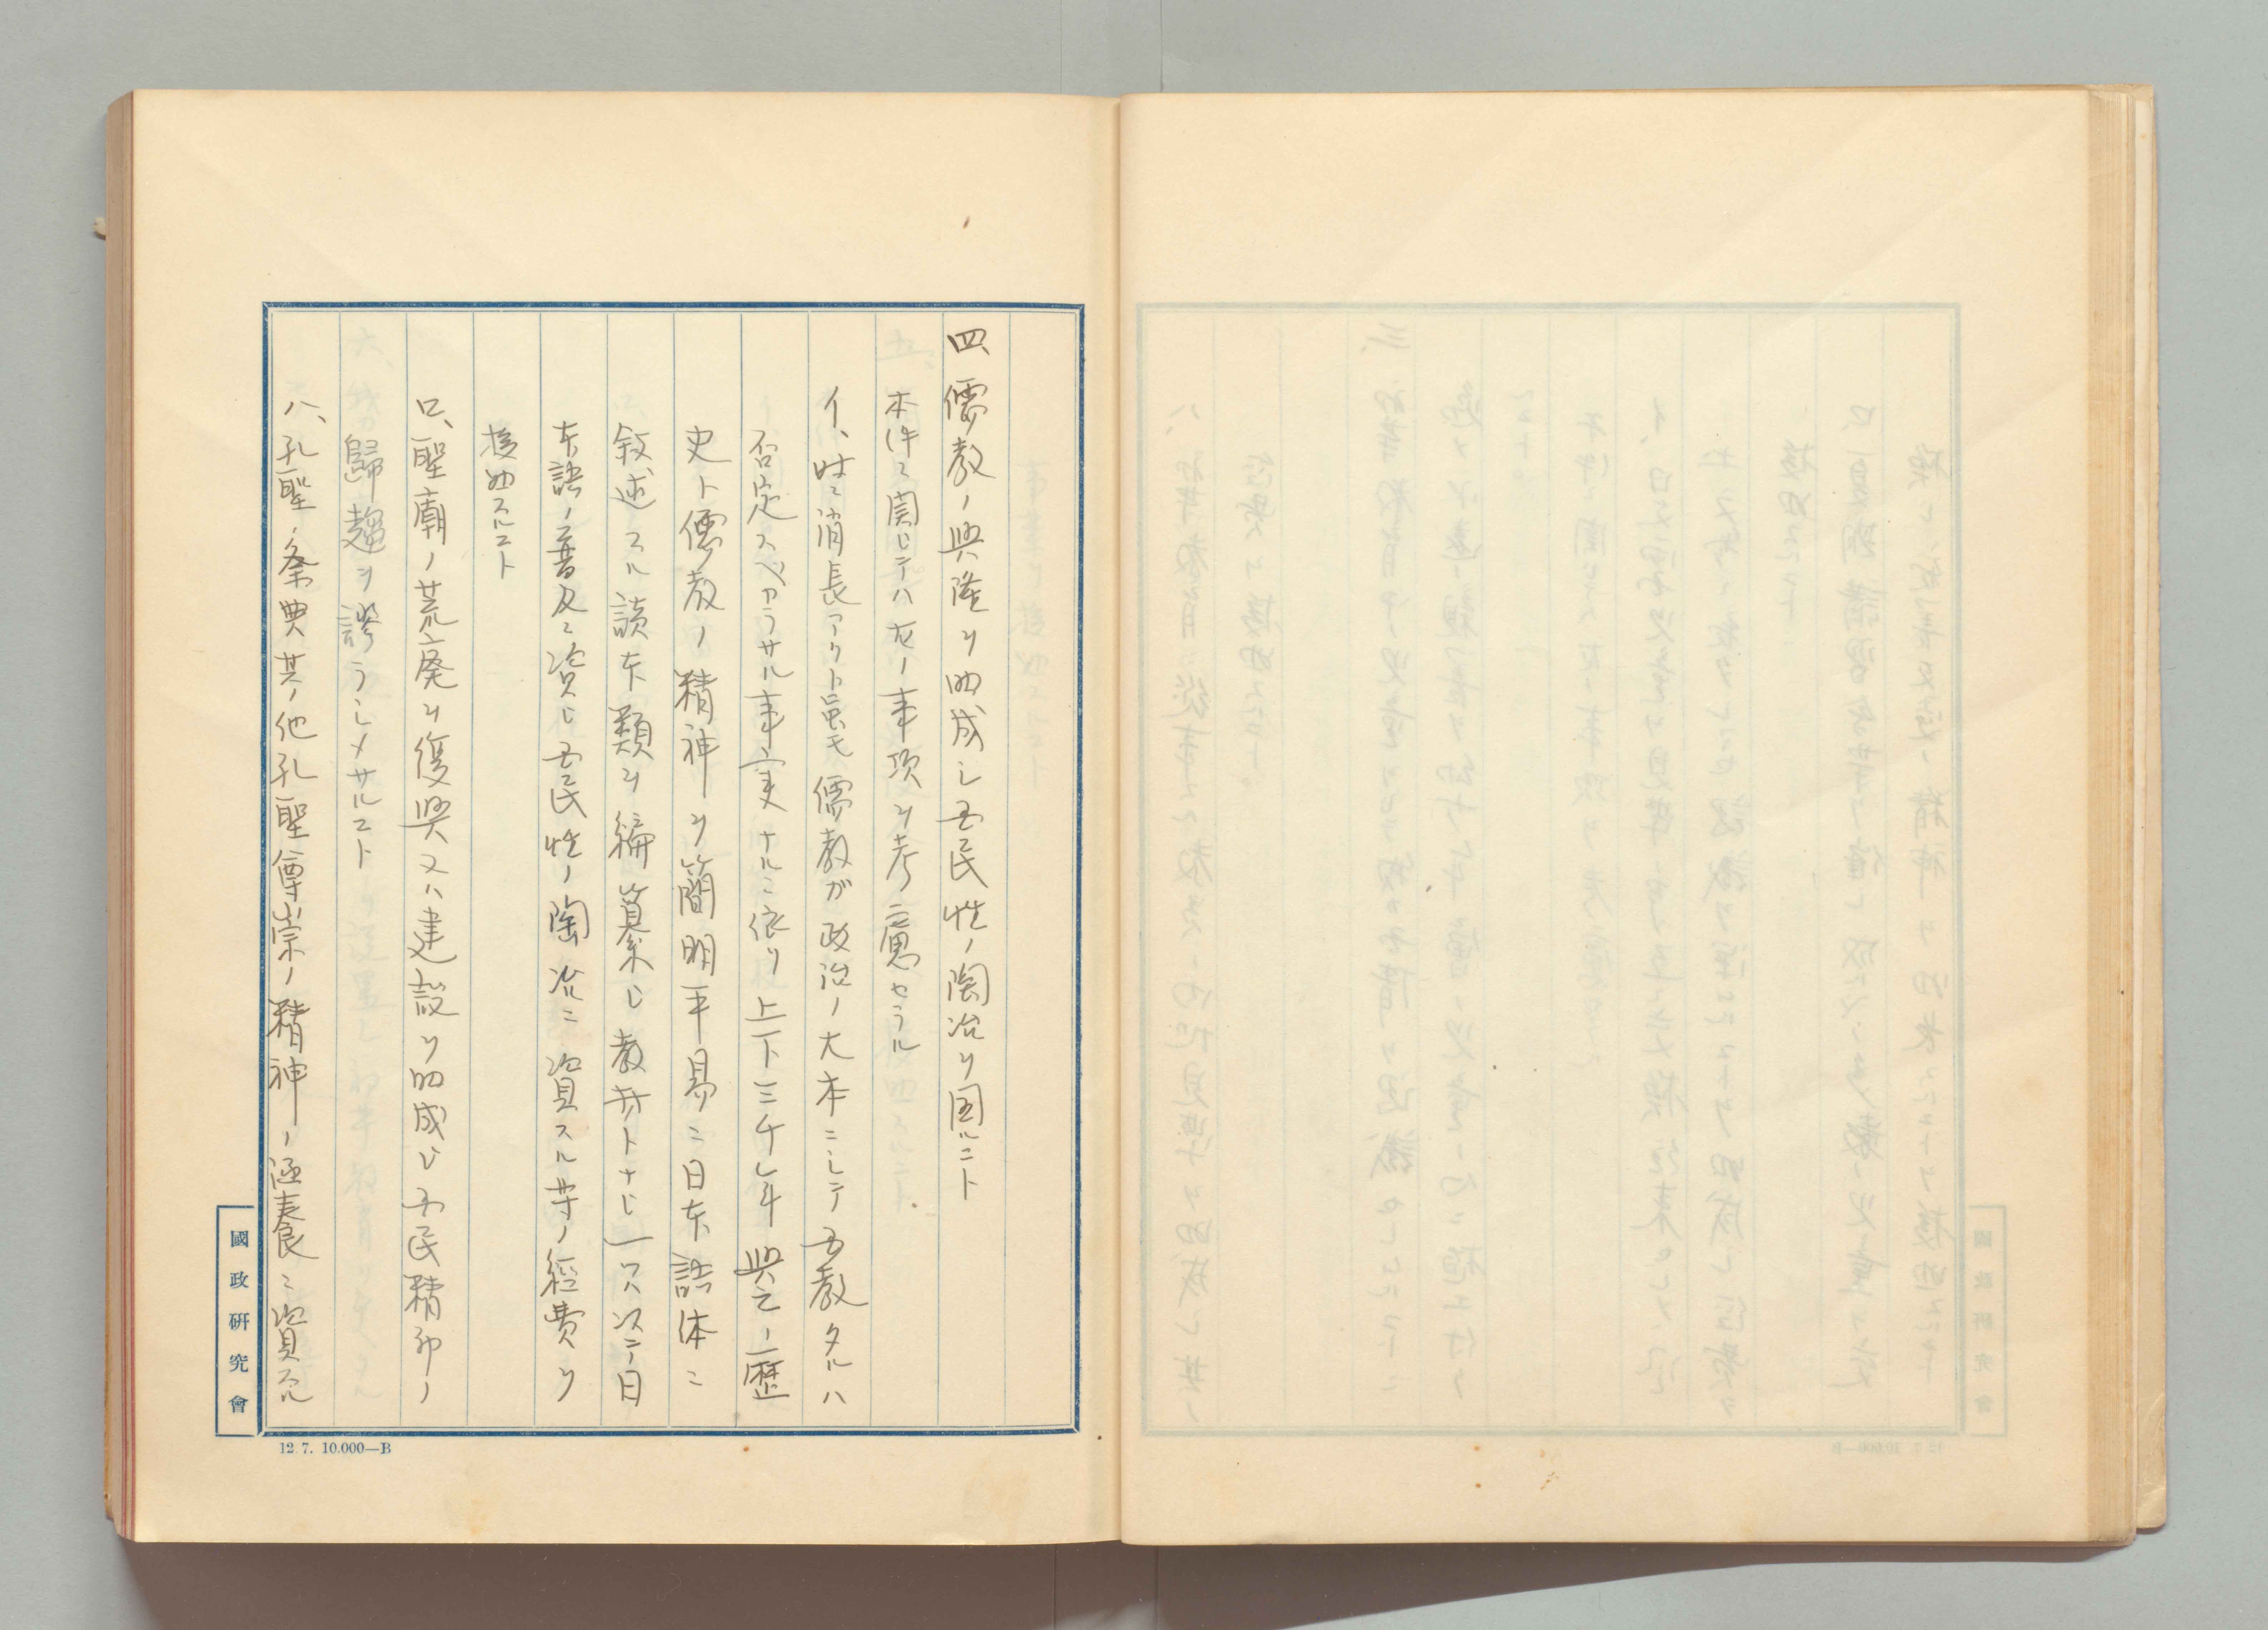 四、儒教ノ興隆ヲ助成シ五民性ノ陶冶ヲ図ルコト
本件ニ関シテハ左ノ事項ヲ考慮セラル
イ、時ニ消長アリト雖モ儒教ガ政治ノ大本ニシテ五教タルハ
否定スベカラサル事実ナルニ依リ上下三千年興亡ノ歴
史ト儒教ノ精神ヲ簡明平易ニ日本語体ニ
敍述スル読本類ヲ編纂シ教材トナシ一ハ以テ日
本語ノ普及ニ資シ五民性ノ陶冶ニ資スル等ノ経費ヲ
援助スルコト
ロ、聖廟ノ荒廃ヲ復興又ハ建設ヲ助成シ五民精神ノ
歸趨ヲ謬ラシメサルコト
ハ、孔聖ノ祭典其ノ他孔聖尊崇ノ精神ノ涵養ニ資スル
國政研究會
12. 7. 10.000—B